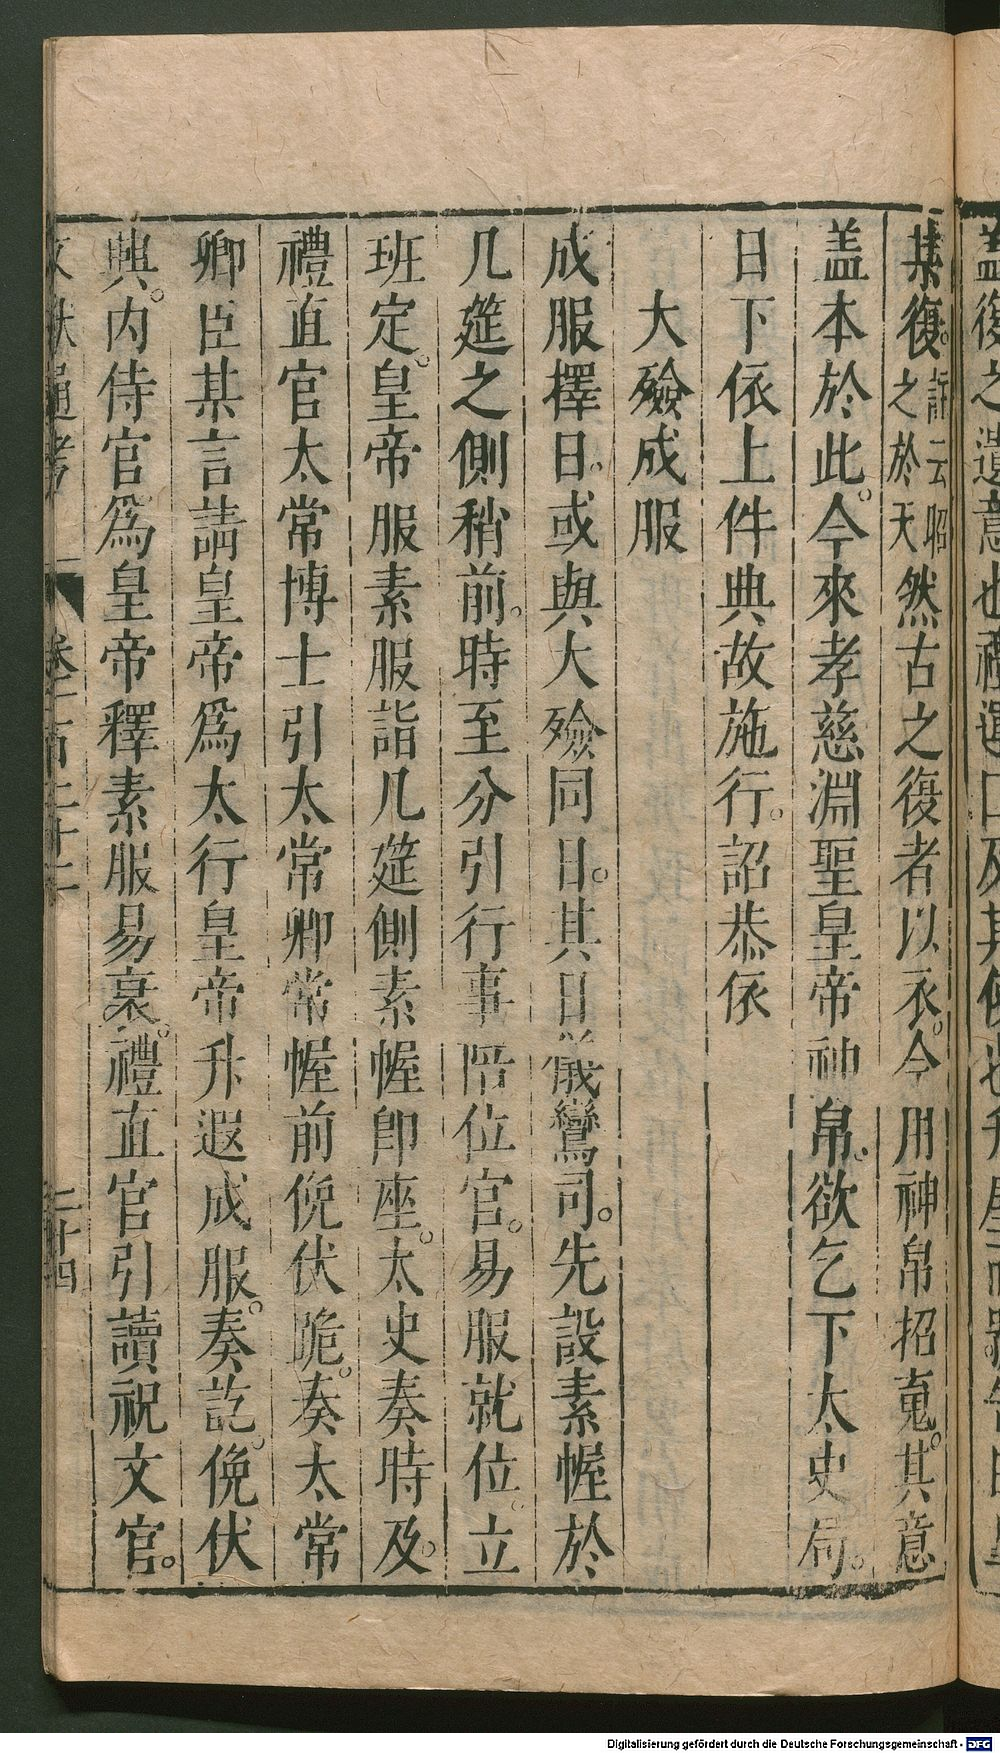 蓋復之遺意也禮運
某復。註云招之於天然古之復者以衣。今用神帛招䰟。其意
盖本於此。今來孝慈淵聖皇帝神帛。欲乞下太史局。
日下依上件典故施行。詔恭依
大殮成服
成服擇日。或與大殮同日。其日儀鸞司。先設素幄於
几筵之側稍前。時至分引行事陪位官。易服就位。立
班定。皇帝服素服詣几筵側素幄即座。太史奏時及。
禮直官太常博士引太常卿常幄前俛伏跪。奏太常
卿臣某言請皇帝爲大行皇帝升遐成服。奏訖。俛伏
興。内侍官爲皇帝釋素服易衰。禮直官引讀祝文官。
文獻通考 卷一百二十二 二十四
Digitalisierung gefördert durch die Deutsche Forschungsgemeinschaft - DFG